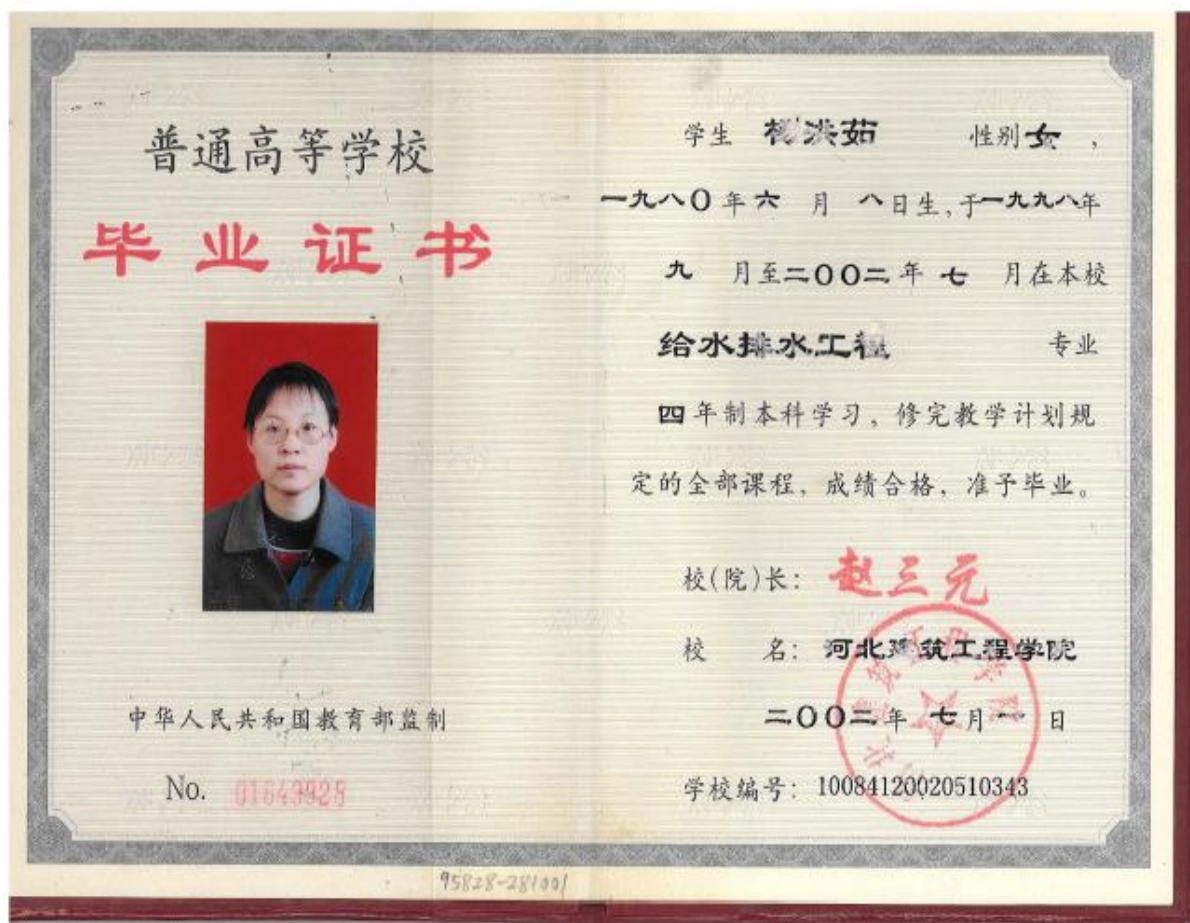 普通高等学校
毕业证书
中华人民共和国教育部监制
No. 01643928
学生 杨洪茹 性别女，
一九八〇年六月八日生，于一九九八年
九月至二〇〇二年七月在本校
给水排水工程 专业
四年制本科学习，修完教学计划规
定的全部课程，成绩合格，准予毕业。
校(院)长：赵三元
校 名：河北建筑工程学院
二〇〇二年七月一日
学校编号：10084120020510343
95828-281001